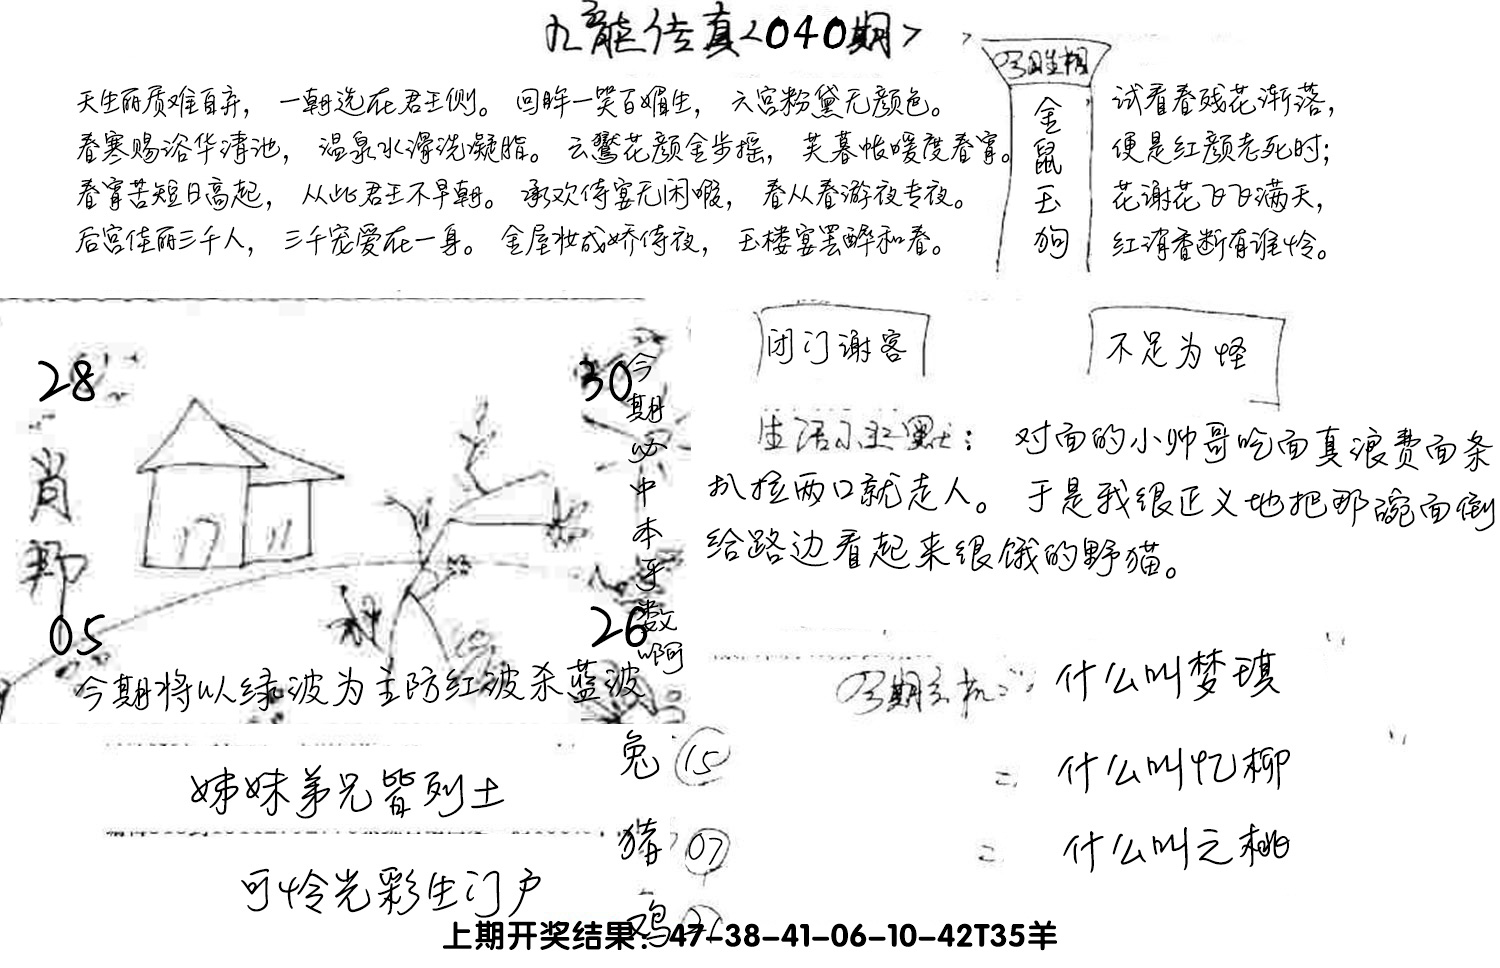 九龍传真<040期>
今日生相
金鼠玉狗
天生丽质难自弃，一朝选在君王侧。回眸一笑百媚生，六宫粉黛无颜色。
春寒赐浴华清池，温泉水滑洗凝脂。云鬓花颜金步摇，芙暮帐暖度春宵。
春宵苦短日高起，从此君王不早朝。承欢侍宴无闲暇，春从春游夜专夜。
后宫佳丽三千人，三千宠爱在一身。金屋妆成娇侍夜，玉楼宴罢醉和春。
试看春残花渐落，
便是红颜老死时；
花谢花飞飞满天，
红消香断有谁怜。
28
30
肖邦
05
26
今期必中本乎数啊
今期将以绿波为主防红波杀蓝波
闭门谢客
不足为怪
生活幽默：对面的小帅哥吃面真浪费面条
扒拉两口就走人。于是我很正义地把那碗面倒
给路边看起来很饿的野猫。
今期玄机：什么叫梦琪
= 什么叫忆柳
= 什么叫之桃
姊妹弟兄皆列土
可怜光彩生门户
兔 15
猪 07
鸡
上期开奖结果：47-38-41-06-10-42T35羊